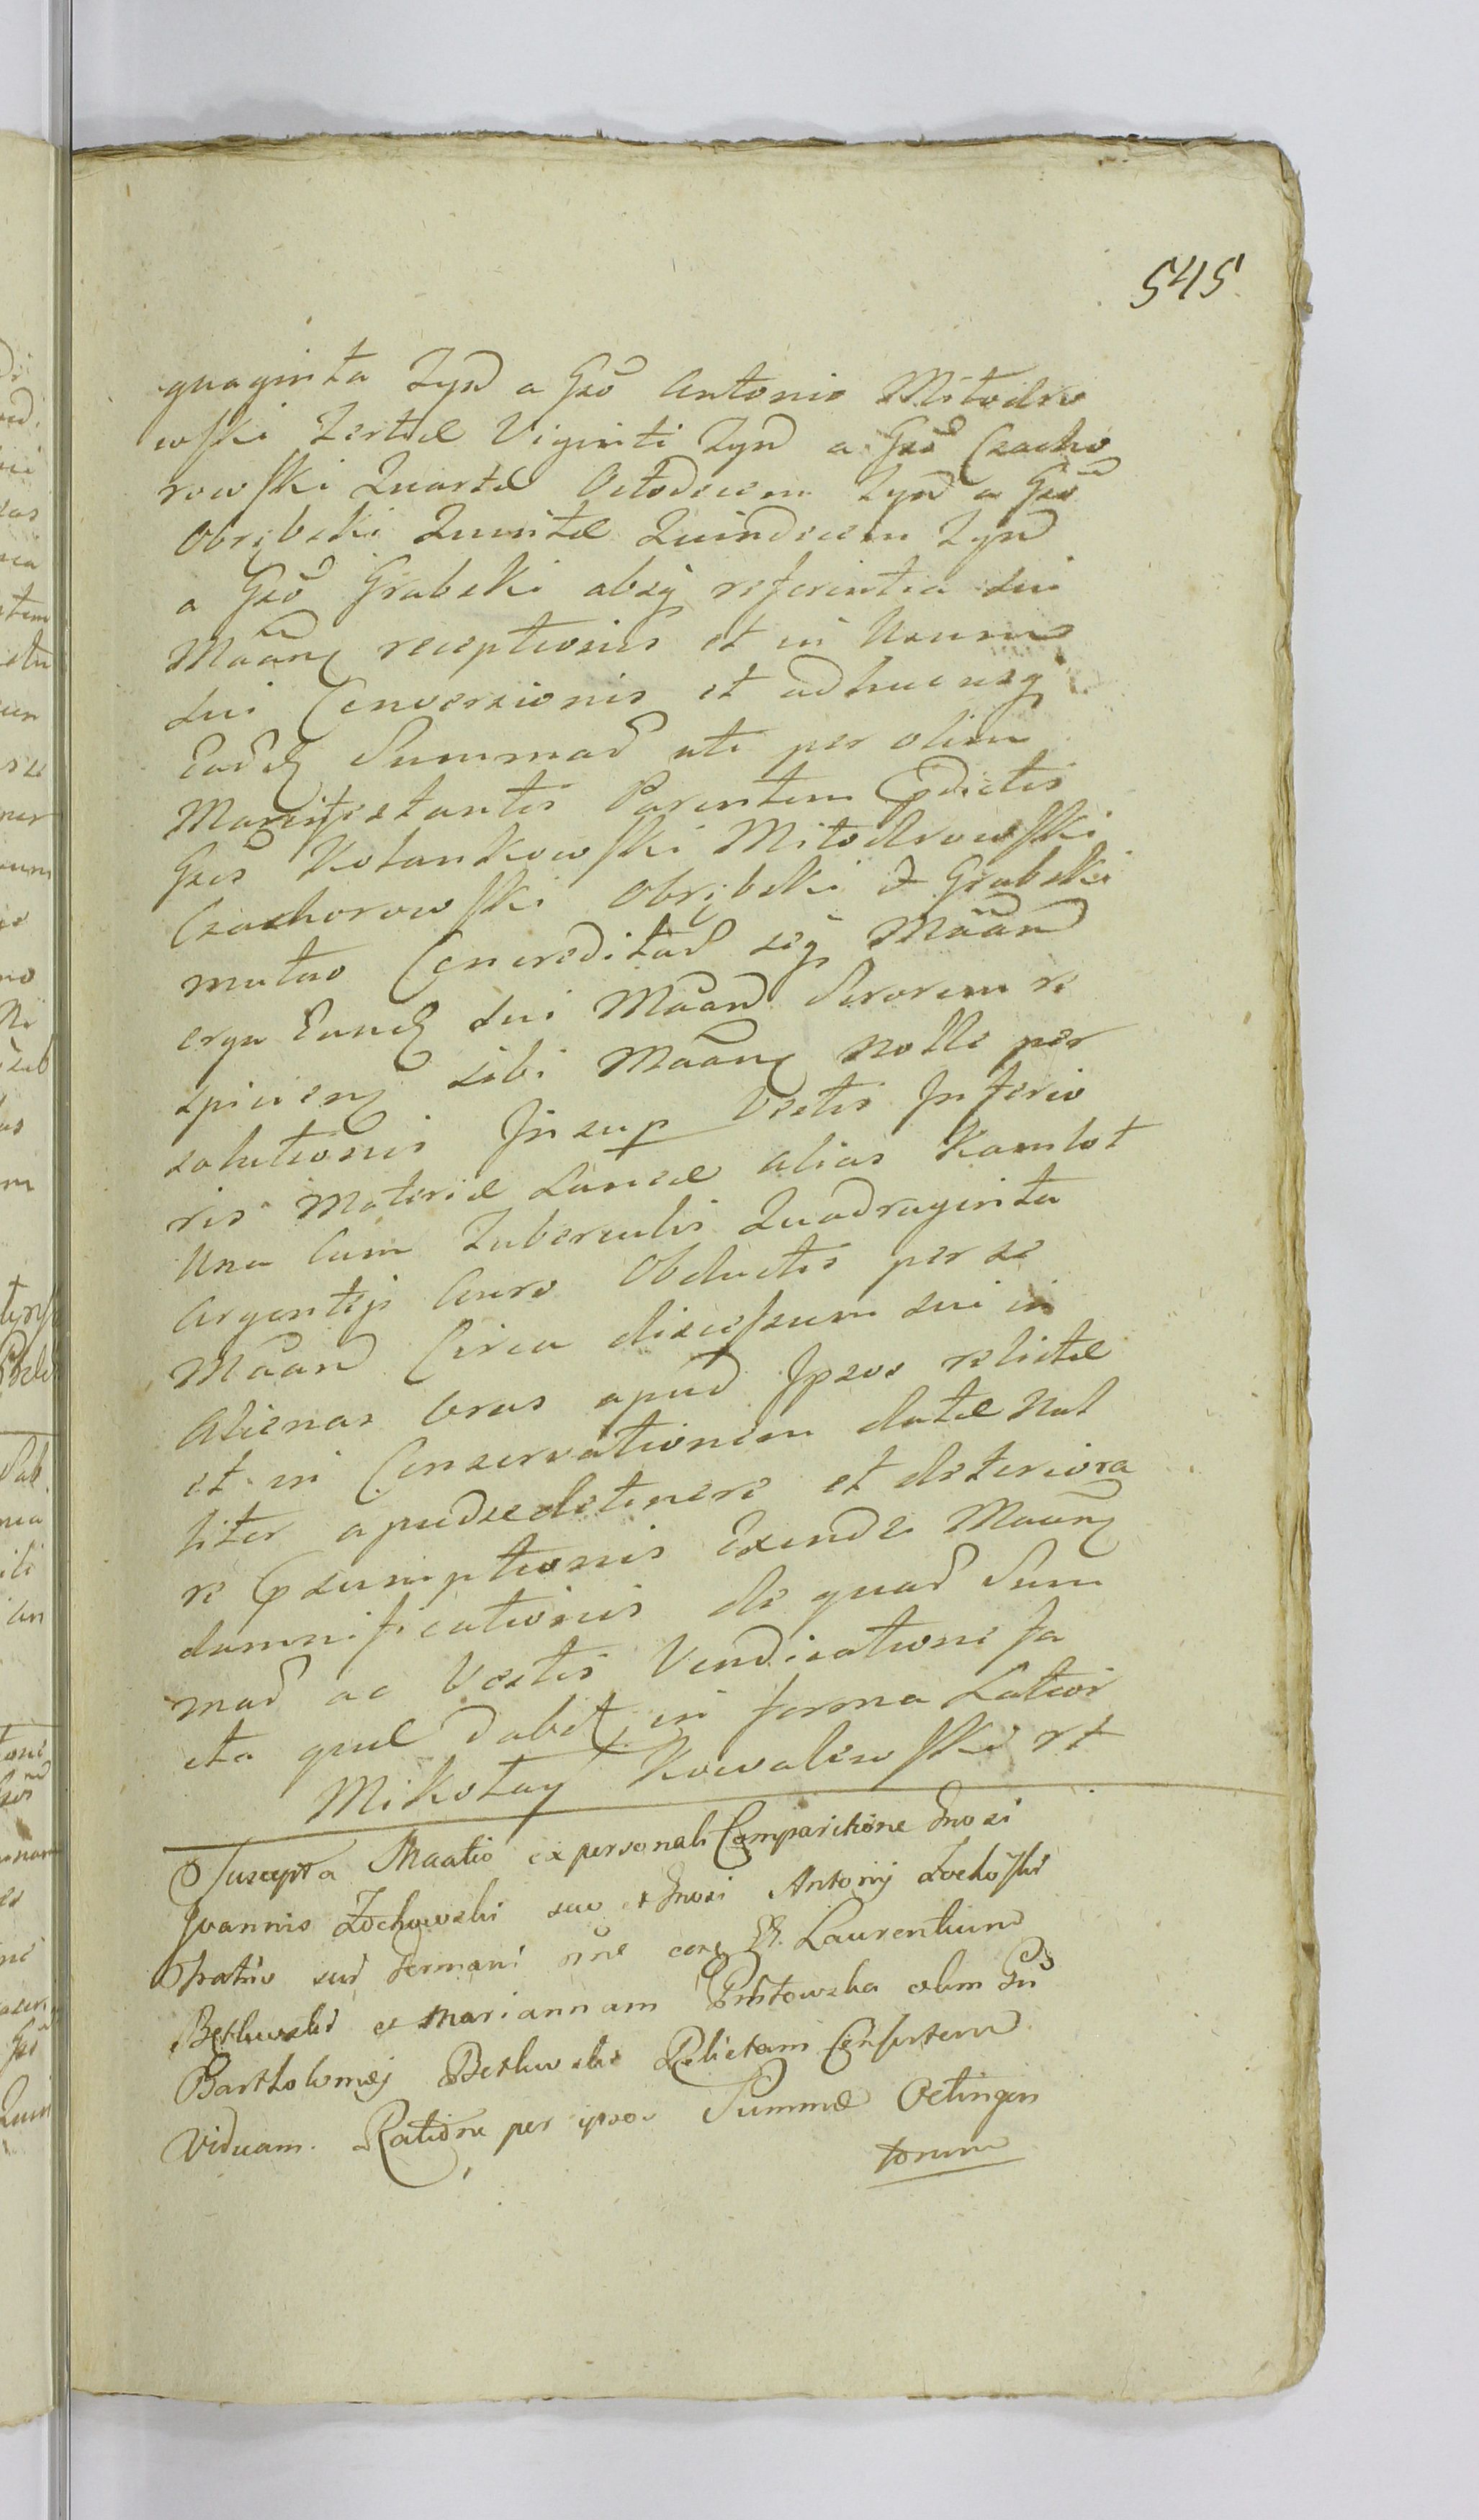 545
quaginta Tynf a Gso Antonio Mitodro
wski Tertiæ Viginti Tynf a Gso Czacho
rowski Quartæ Octodecem Tynf a Gso
Obrębski Quintæ Quindecem Tynf
a Gso Grabski absq referentia sui
Maang receptionis et in Usum
sui Conversionis et adhuc usq
Eadq Summad uti per olim
Manifestantis Parentem pdictis
Gsis Kotankowski Mitodrowski
Czachorowski Obrębski et Grabski
mutuo Concreditad seq Maand
erga Eundq sui Maand Sororem re
spicieng sibi Maang nolle per
solutionis Insup Vestis Inferio
ris Materiæ Laneæ alias Kamlot
Una Cum Tuberculis Quadraginta
Argenteis Auro Obductis per se
Maand Circa discessum sui in
Alienas oras apud Ipsos relictæ
et in Conservationem datæ Nul
liter apud se detinere et deteriora
re psumptionis Exinde Maang
damnificationis de quad Sum
mad ac Vestis Vendicatione fa
cta quæ dabit in forma Latiori
Mikołay Kowalewski rt
Suscepta Maatio ex personali Comparitione Gnosi
Joannis Zochowski suo et Gnosi Antonij Zochoski
Fratris sui Germani nne cong Laurentium
Bethwski et Mariannam olim Gsi
Bartholomæj Bethwski Relictam Consortem
Viduam. Ratione per ipsos Summæ Octingen
torum